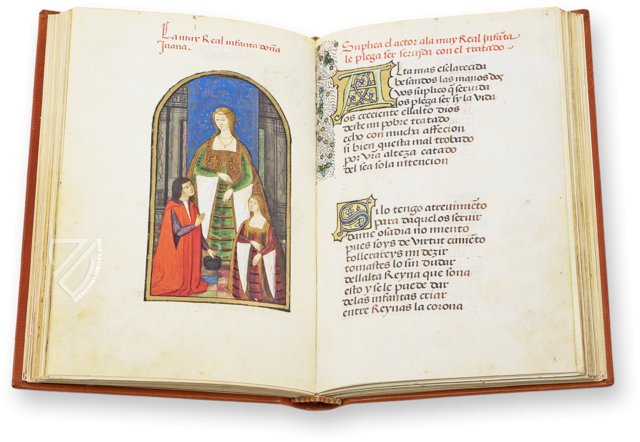 La muy Real infanta doña
Juana.
Suplica el actor ala muy Real Infãta
le plega ser seruida con el tratado
Alta mas esclarecida
besandos las manos dos
vos suplico q̃ seruida
los plega ser sy la vida
os creciente el alto dios
deste mi pobre tratado
echo con mucha affecion
si bien questa mal trobado
por vr̃a alteza catado
del sea sola intencion
Si lo tengo atreuimiẽto
para daquelos seruir
dame osadia no miento
pues soys de virtut cimiẽto
tollerareys mi dezir
tomastes lo sin dudar
dellalta Reyna que sona
esto y se le puede dar
delas infantas criar
entre Reynas la corona